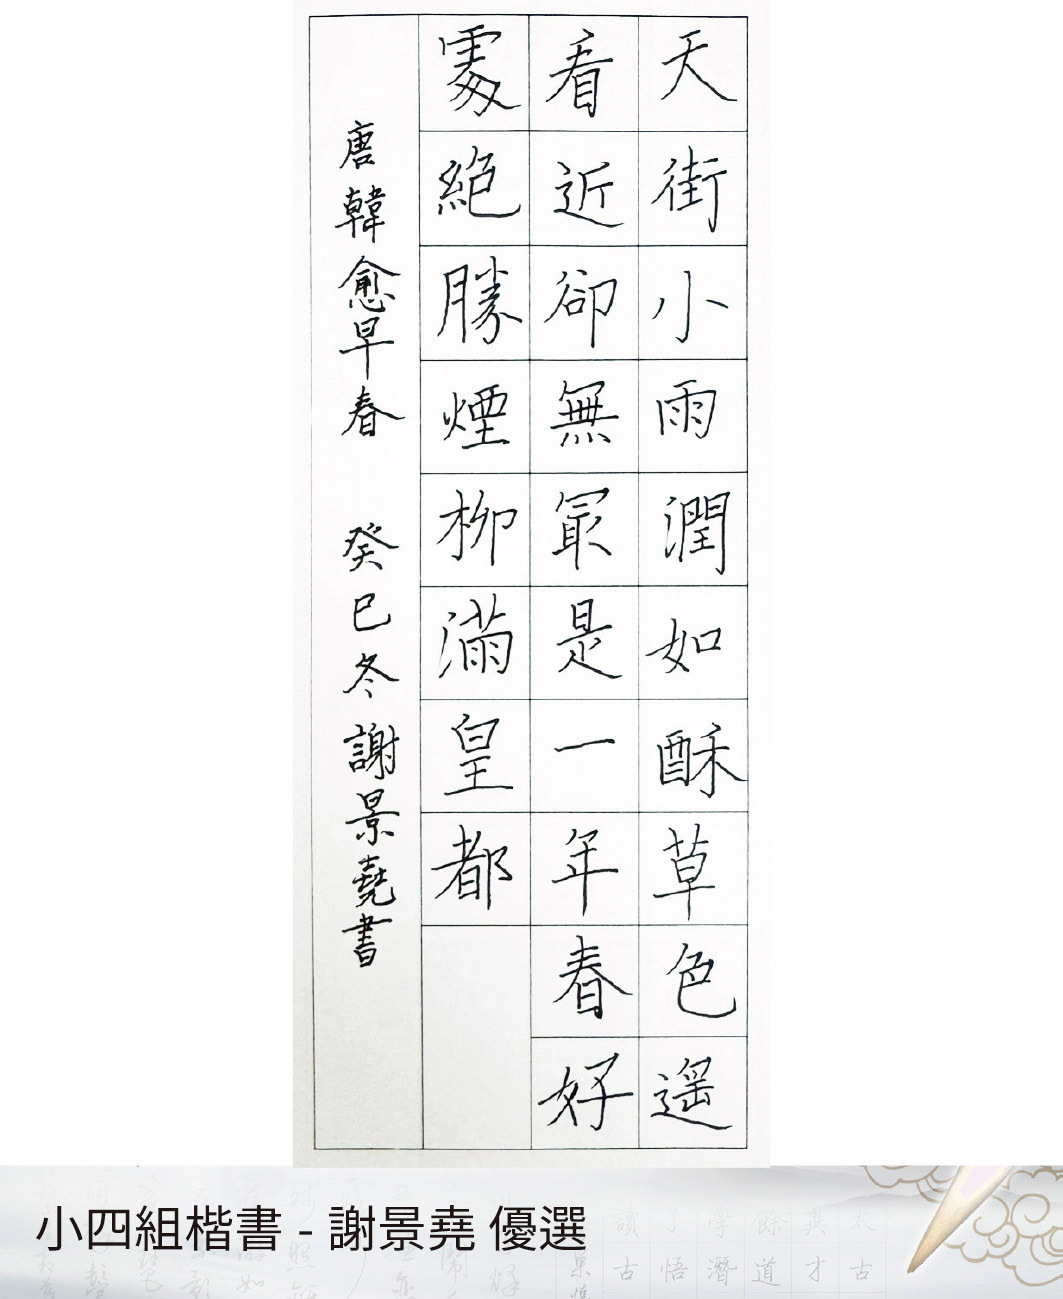 天街小雨潤如酥草色遙
看近卻無最是一年春好
處絕勝煙柳滿皇都
唐韓愈早春 癸巳冬謝景堯書
小四組楷書 - 謝景堯 優選